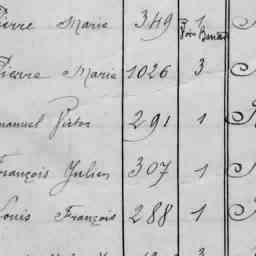 Pierre Marie 349 1
Pierre Marie 1026 3
manuel Victor 291 1
François Julien 307 1
Louis François 288 1